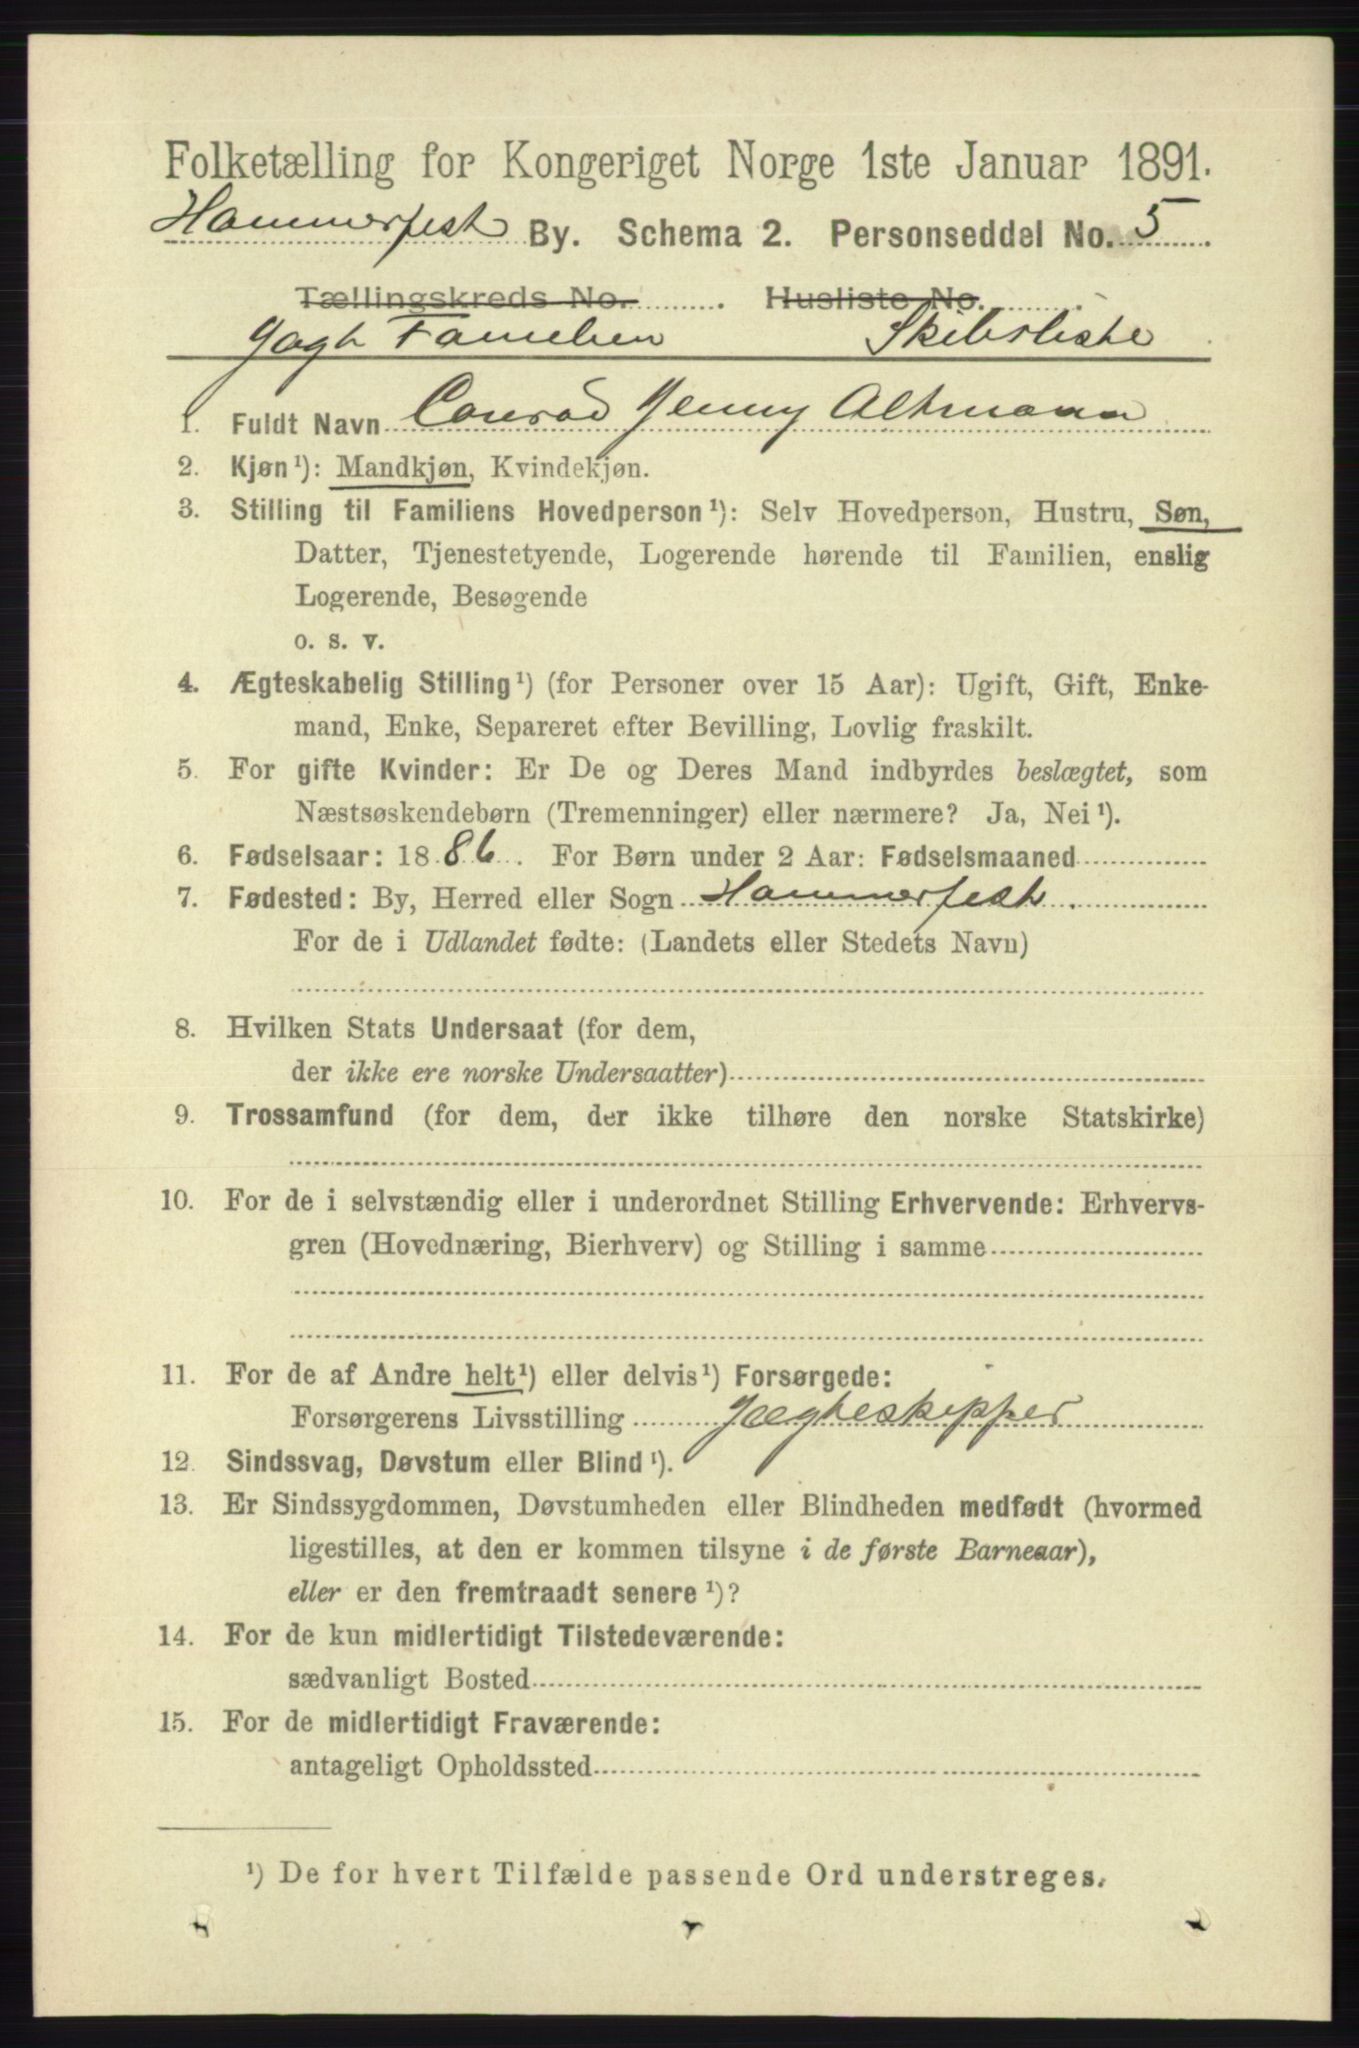 Folketælling for Kongeriget Norge 1ste Januar 1891.
Hammerfest By. Schema 2. Personseddel No. 5
Tællingskreds No. . Husliste No.
Jagt Familien Skibsliste
1. Fuldt Navn Conrad Jenny Altmann
2. Kjøn¹): Mandkjøn, Kvindekjøn.
3. Stilling til Familiens Hovedperson¹): Selv Hovedperson, Hustru, Søn,
Datter, Tjenestetyende, Logerende hørende til Familien, enslig
Logerende, Besøgende
o. s. v.
4. Ægteskabelig Stilling¹) (for Personer over 15 Aar): Ugift, Gift, Enke-
mand, Enke, Separeret efter Bevilling, Lovlig fraskilt.
5. For gifte Kvinder: Er De og Deres Mand indbyrdes beslægtet, som
Næstsøskendebørn (Tremenninger) eller nærmere? Ja, Nei¹).
6. Fødselsaar: 1886. For Børn under 2 Aar: Fødselsmaaned
7. Fødested: By, Herred eller Sogn Hammerfest.
For de i Udlandet fødte: (Landets eller Stedets Navn)
8. Hvilken Stats Undersaat (for dem,
der ikke ere norske Undersaatter)
9. Trossamfund (for dem, der ikke tilhøre den norske Statskirke)
10. For de i selvstændig eller i underordnet Stilling Erhvervende: Erhvervs-
gren (Hovednæring, Bierhverv) og Stilling i samme
11. For de af Andre helt¹) eller delvis¹) Forsørgede:
Forsørgerens Livsstilling Jægteskipper
12. Sindssvag, Døvstum eller Blind¹).
13. Er Sindssygdommen, Døvstumheden eller Blindheden medfødt (hvormed
ligestilles, at den er kommen tilsyne i de første Barneaar),
eller er den fremtraadt senere¹)?
14. For de kun midlertidigt Tilstedeværende:
sædvanligt Bosted
15. For de midlertidigt Fraværende:
antageligt Opholdssted
¹) De for hvert Tilfælde passende Ord understreges.